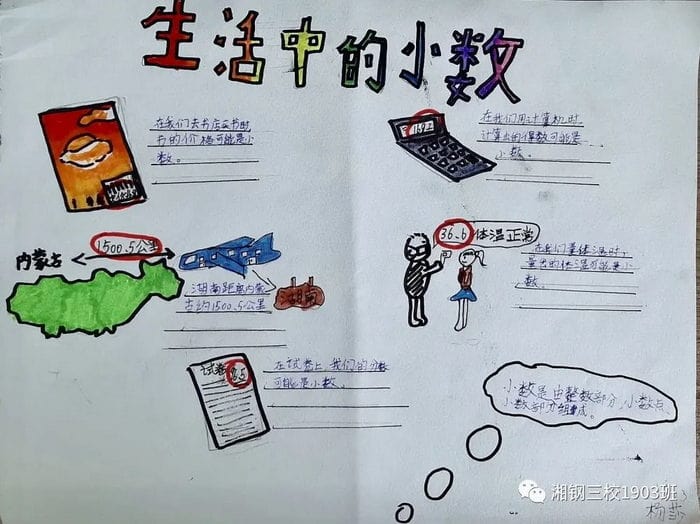 生活中的小数
在我们去书店买书时
书的价格可能是小
数。
在我们用计算机时
计算出的得数可能是
小数。
1500.5公里
内蒙古
湖南距离内蒙
古约1500.5公里
湖南
36.6
体温正常
在我们量体温时,
量出的体温可能是小
数。
试卷
8.5
在试卷上,我们的分数
可能是小数。
小数是由整数部分,小数点
小数部分组成。
湘钢三校1903班